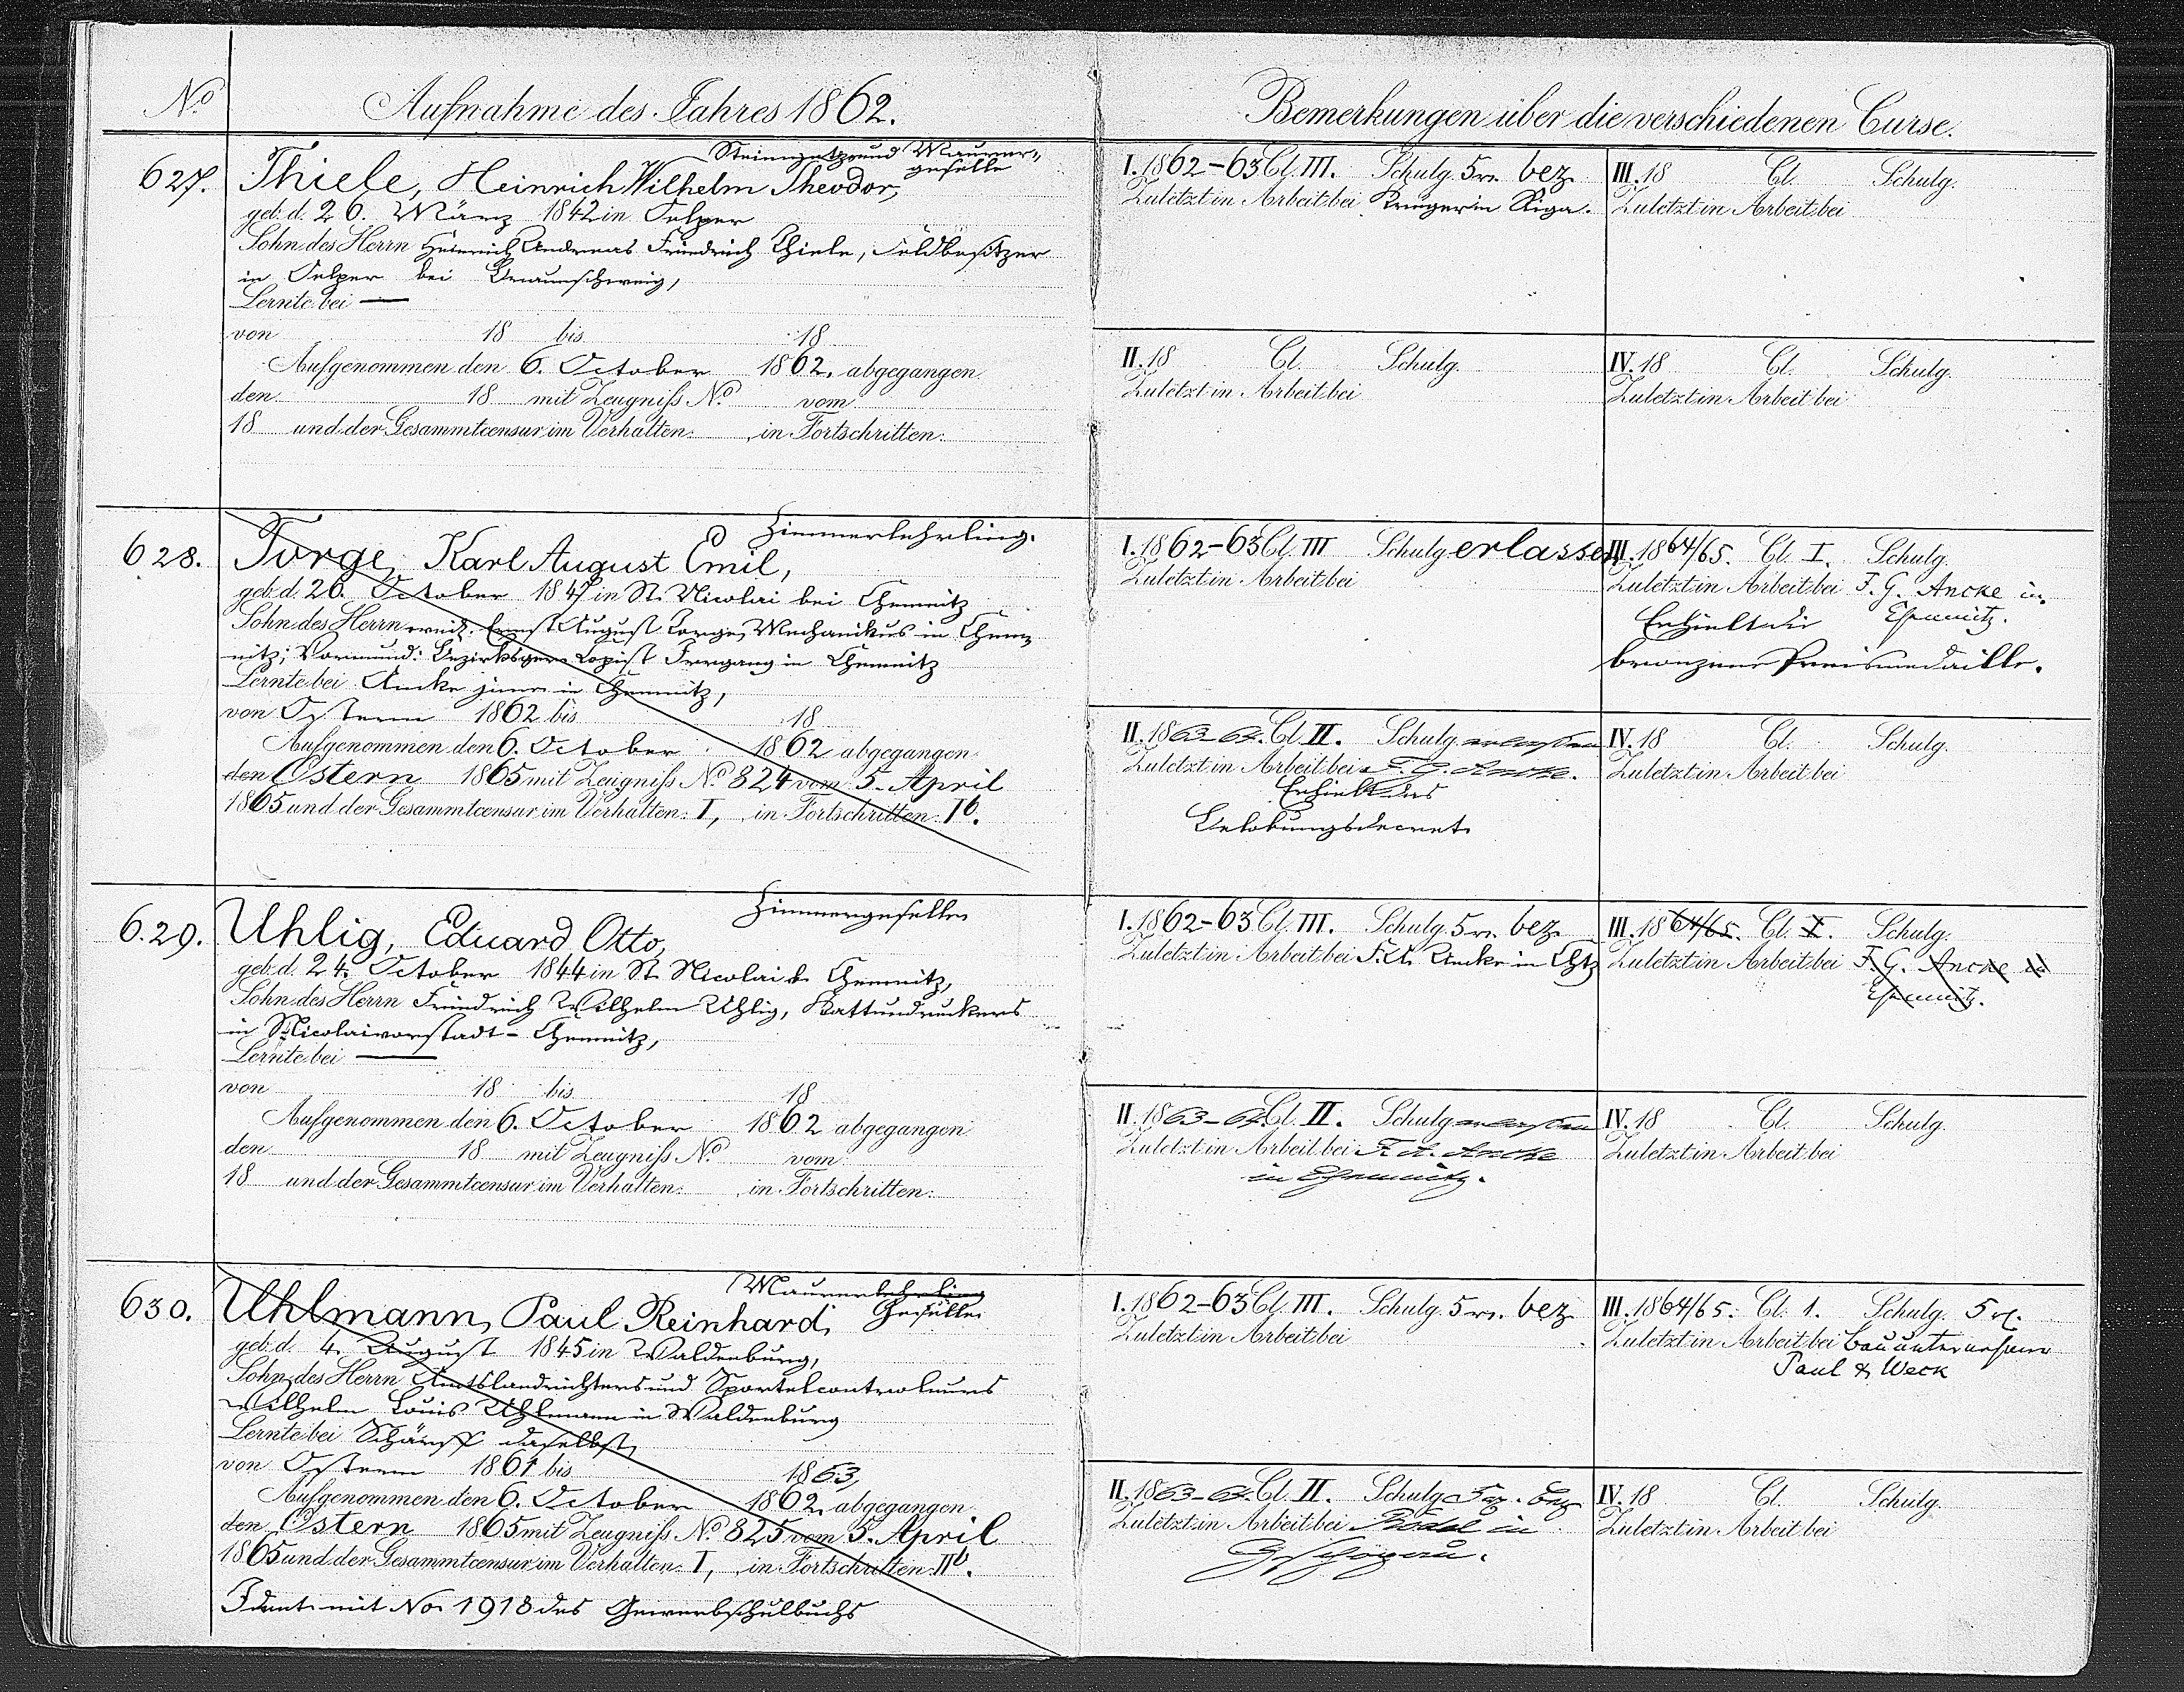 No. Aufnahme des Jahres 1862.
627. Steinmetz und Maurer-
geselle
Thiele, Heinrich Wilhelm Theodor,
geb. d. 26. März 1842 in Oelper
Sohn des Herrn Heinrich Andreas Friedrich Thiele, Feldbesitzer
in Oelper bei Braunschweig,
Lernte bei —
von 18 bis 18
Aufgenommen den 6. October 1862. abgegangen
den 18 mit Zeugniss No. vom
18 und der Gesammtcensur im Verhalten: , in Fortschritten:
628. Zimmerlehrling.
Torge, Karl August Emil,
geb. d. 26. October 1847 in St. Nicolai bei Chemnitz
Sohn des Herrn Ernst August Torge, Mechanikus in Chem-
nitz; Vormund: Bezirksger. Copist Irrgang in Chemnitz
Lernte bei Ancke jun. in Chemnitz,
von Ostern 1862 bis 18
Aufgenommen den 6. October 1862 abgegangen
den Ostern 1865 mit Zeugniss No. 824 vom 5. April
1865 und der Gesammtcensur im Verhalten: I, in Fortschritten: Ib.
629. Zimmergeselle
Uhlig, Eduard Otto,
geb. d. 24. October 1844 in St. Nicolai b. Chemnitz,
Sohn des Herrn Friedrich Wilhelm Uhlig, Kattundruckers
in Nicolaivorstadt-Chemnitz,
Lernte bei —
von 18 bis 18
Aufgenommen den 6. October 1862 abgegangen
den 18 mit Zeugniss No. vom
18 und der Gesammtcensur im Verhalten: , in Fortschritten:
630. Maurerlehrling
Geselle
Uhlmann, Paul Reinhard,
geb. d. 4. August 1845 in Waldenburg,
Sohn des Herrn Amtslandrichters und Sportelcontroleurs
Wilhelm Louis Uhlmann in Waldenburg
Lernte bei Schärff daselbst,
von Ostern 1861 bis 1863,
Aufgenommen den 6. October 1862 abgegangen
den Ostern 1865 mit Zeugniss No. 825 vom 5. April
1865 und der Gesammtcensur im Verhalten: I, in Fortschritten: IIb.
Ident. mit No. 1918 des Gewerbschulbuchs
Bemerkungen über die verschiedenen Curse.
I. 1862-63 Cl. III. Schulg. 5 bez.
Zuletzt in Arbeit bei Krüger in Riga.
III. 18 Cl. Schulg.
Zuletzt in Arbeit bei
II. 18 Cl. Schulg.
Zuletzt in Arbeit bei
IV. 18 Cl. Schulg.
Zuletzt in Arbeit bei
I. 1862-63 Cl. III Schulg. erlassen
Zuletzt in Arbeit bei
III. 1864/65. Cl. I. Schulg.
Zuletzt in Arbeit bei F. G. Ancke in
Chemnitz.
Erhielt die
bronzene Preismedaille.
II. 1863-64. Cl. II. Schulg. erlassen
Zuletzt in Arbeit bei F. G. Ancke.
Erhielt das
Belobungsdecret
IV. 18 Cl. Schulg.
Zuletzt in Arbeit bei
I. 1862-63 Cl. III. Schulg. 5 bez.
Zuletzt in Arbeit bei F. A. Ancke in Chtz
III. 1864/65. Cl. I. Schulg.
Zuletzt in Arbeit bei F. G. Ancke in
Chemnitz.
II. 1863-64. Cl. II. Schulg. erlassen
Zuletzt in Arbeit bei F. A. Ancke
in Chemnitz.
IV. 18 Cl. Schulg.
Zuletzt in Arbeit bei
I. 1862-63 Cl. III. Schulg. 5 bez.
Zuletzt in Arbeit bei
III. 1864/65. Cl. 1. Schulg. 5
Zuletzt in Arbeit bei Bauunternehmer
Paul & Weck
II. 1863-64. Cl. II. Schulg. bez
Zuletzt in Arbeit bei in
IV. 18 Cl. Schulg.
Zuletzt in Arbeit bei